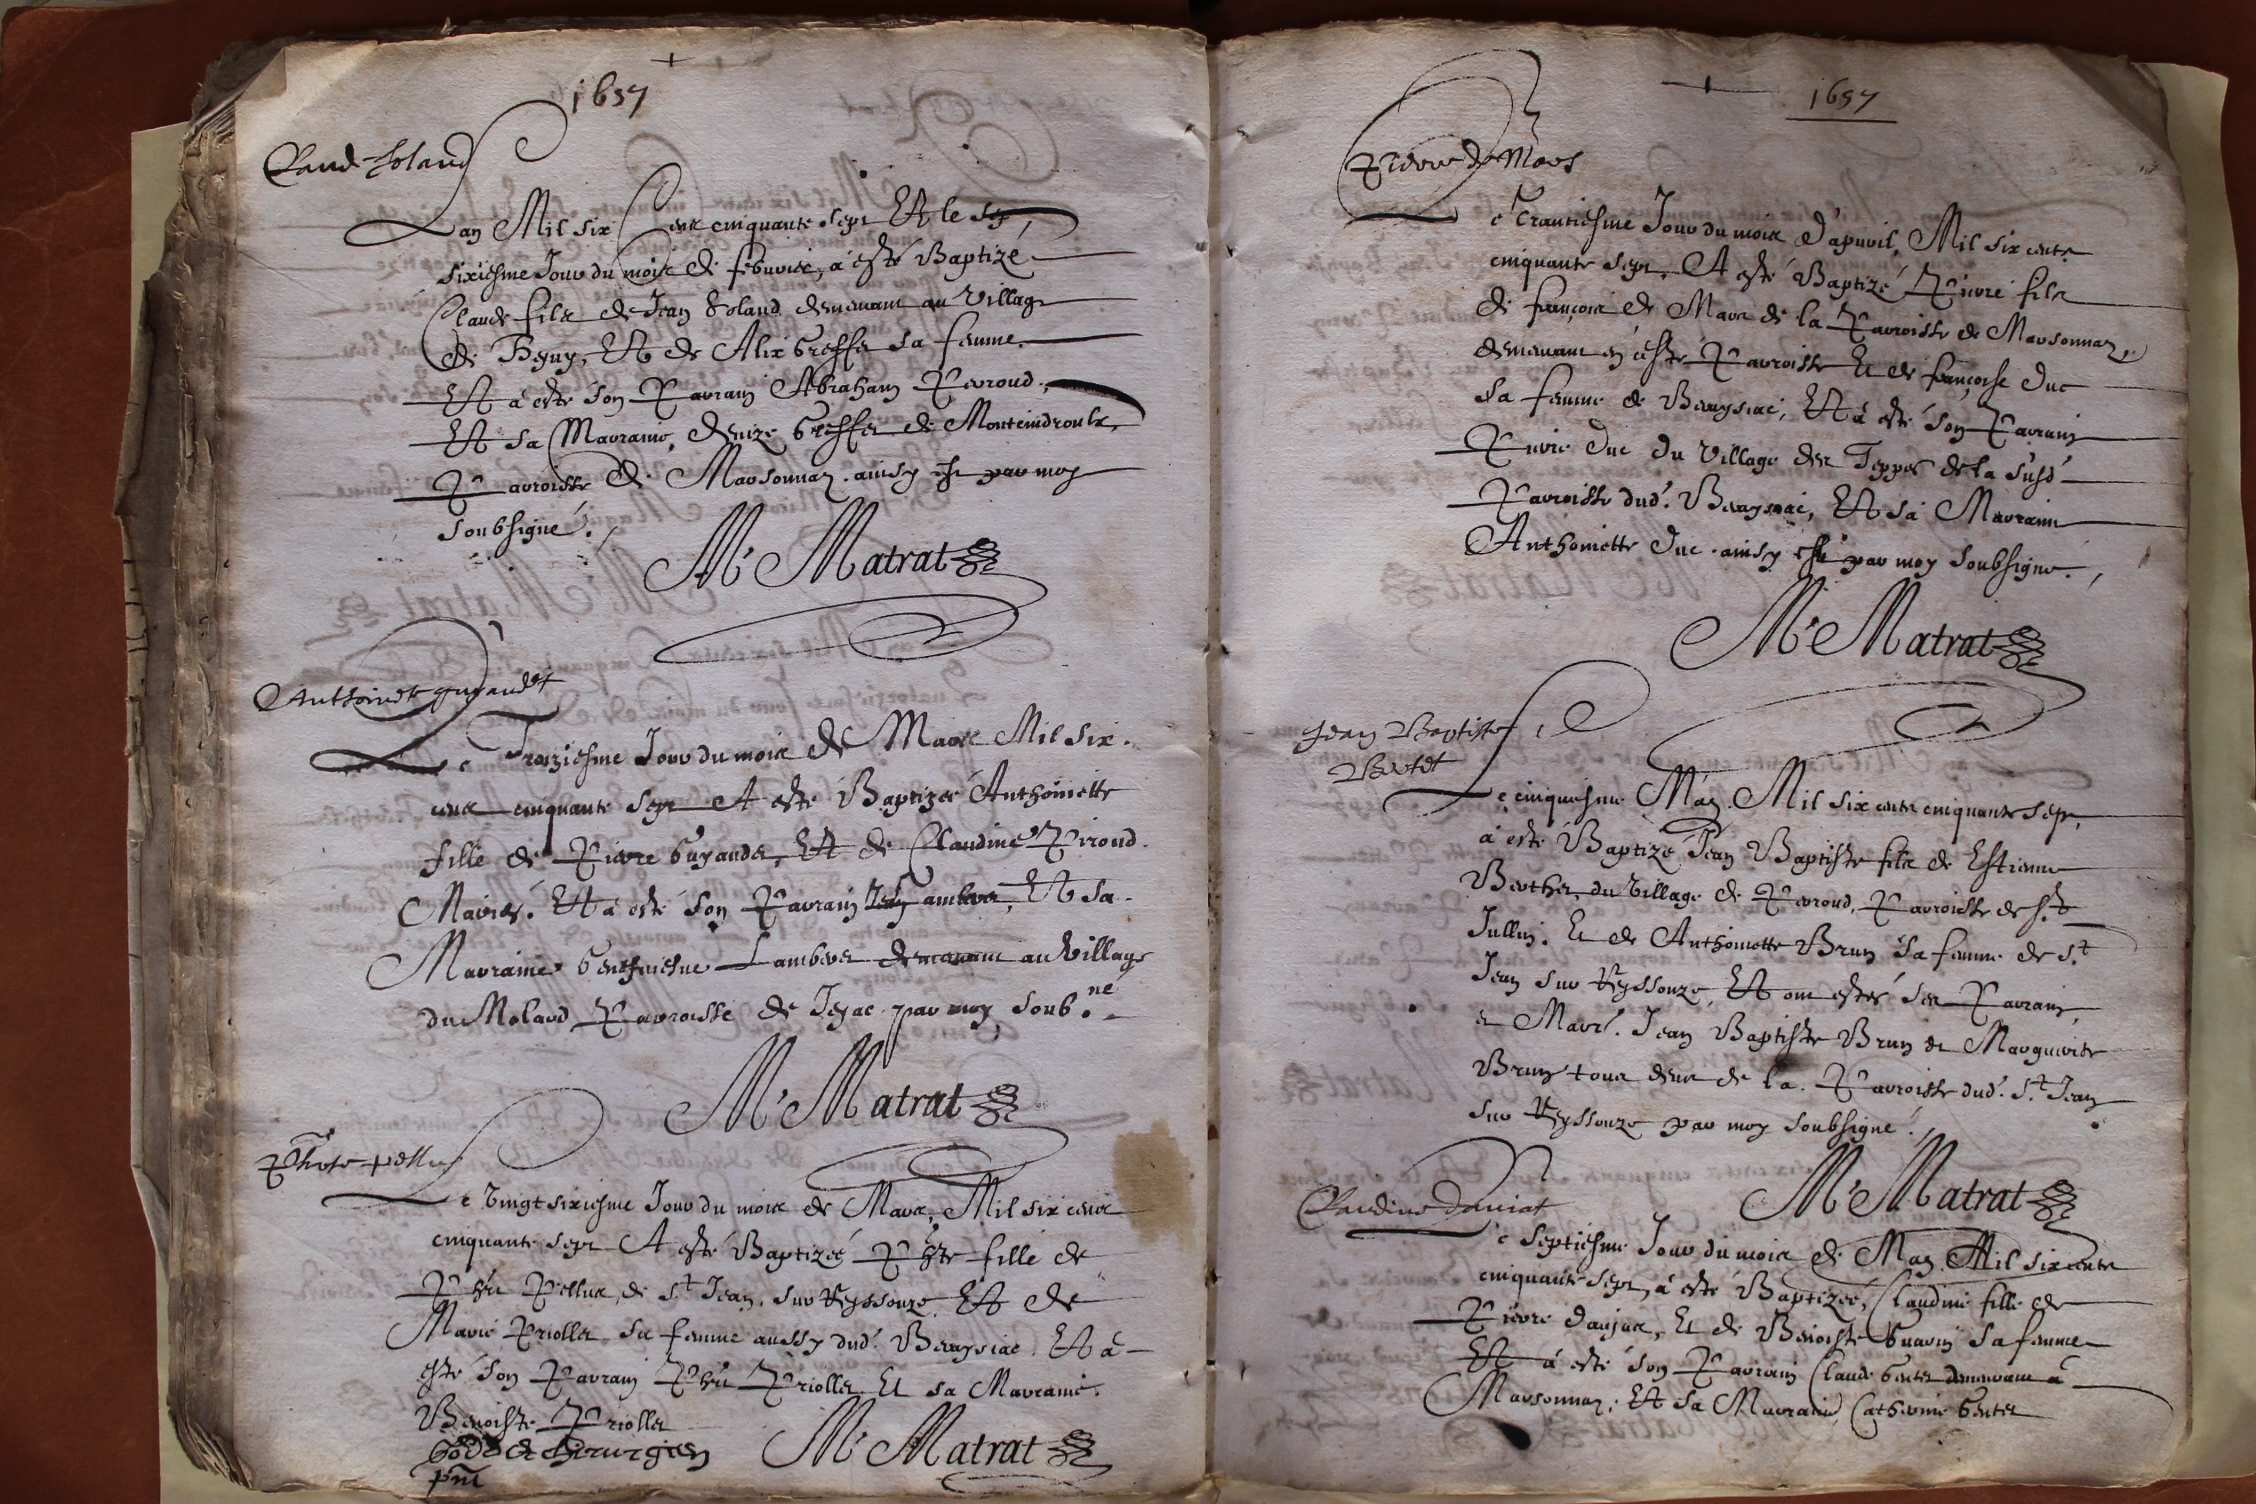 1657
Claude foland
Lan Mil six Cens cinquante sept Et le
sixiesme Jour du mois de febvrier, a esté Baptizé
Claude fils de Jean foland demeurant au Village
de Et de Alix Greffet sa femme.
Et a esté son Parrain Abraham Pevroud.
Et sa Marraine, Denize Greffet de Montcindroulx,
Parroisse de Marsonnaz. ainsy est par moy
soubsigné.
Mre Matrat
Anthoinette guyaudet
Le Troiziesme Jour du mois de Mars Mil six
cens cinquante sept A esté Baptizée Anthoinette
fille de Pierre Guyaudet, Et de Claudine Piroud
Mariés. Et a esté son Parrain Lambert, Et sa
Marraine Lambert demeurant au Village
du Molard Parroisse de Jayac. par moy soub.né
Mre Matrat
Phte pellus
Le Vingt sixiesme Jour du mois de Mars, Mil six cens
cinquante sept A esté Baptizée Phte fille de
Phe Pellus, de St Jean, sur Reyssouze Et de
Marie Priollet sa femme aussy dud. Bereysiac Et a
esté son Parrain Phe Priollet Et sa Marraine.
Benoiste Priollet
Mre Matrat
1657
Pierre de Mars
Le Trantiesme Jour du mois d'apvril, Mil six cents
cinquante sept, A esté Baptizé Pierre fils
de françois de Mars de la Parroisse de Marsonnaz,
demeurant en ceste Parroisse Et de françoise Duc
sa femme de Bereysiac, Et a esté son Parrain
Pierre Duc du Village des Teppes de la susd.
Parroisse dud. Bereysiac, Et sa Marraine
Anthoinette Duc. ainsy est par moy soubsigné.
Mre Matrat
Jean Baptiste
Bertet
Le cinquiesme May. Mil six cents cinquante sept,
a esté Baptizé Jean Baptiste fils de Estienne
Berthet, du Village de Pevroud, Parroisse de St
Jullin. Et de Anthoinette Brun sa femme de St
Jean sur Reyssouze, Et ont estés ses Parrain,
et Marr. Jean Baptiste Brun et Marguerite
Brun tous deux de la. Parroisse dud. St Jean
sur Reyssouze par moy soubsigné.
Mre Matrat
Claudine daujat
Le Septiesme Jour du mois de May Mil six cents
cinquante sept, a esté Baptizée, Claudine fille de
Pierre daujat, Et de Benoiste Guerin sa femme
Et a esté son Parrain Claude Gentet demeurant a
Marsonnaz, Et sa Marraine Catherine Gentet